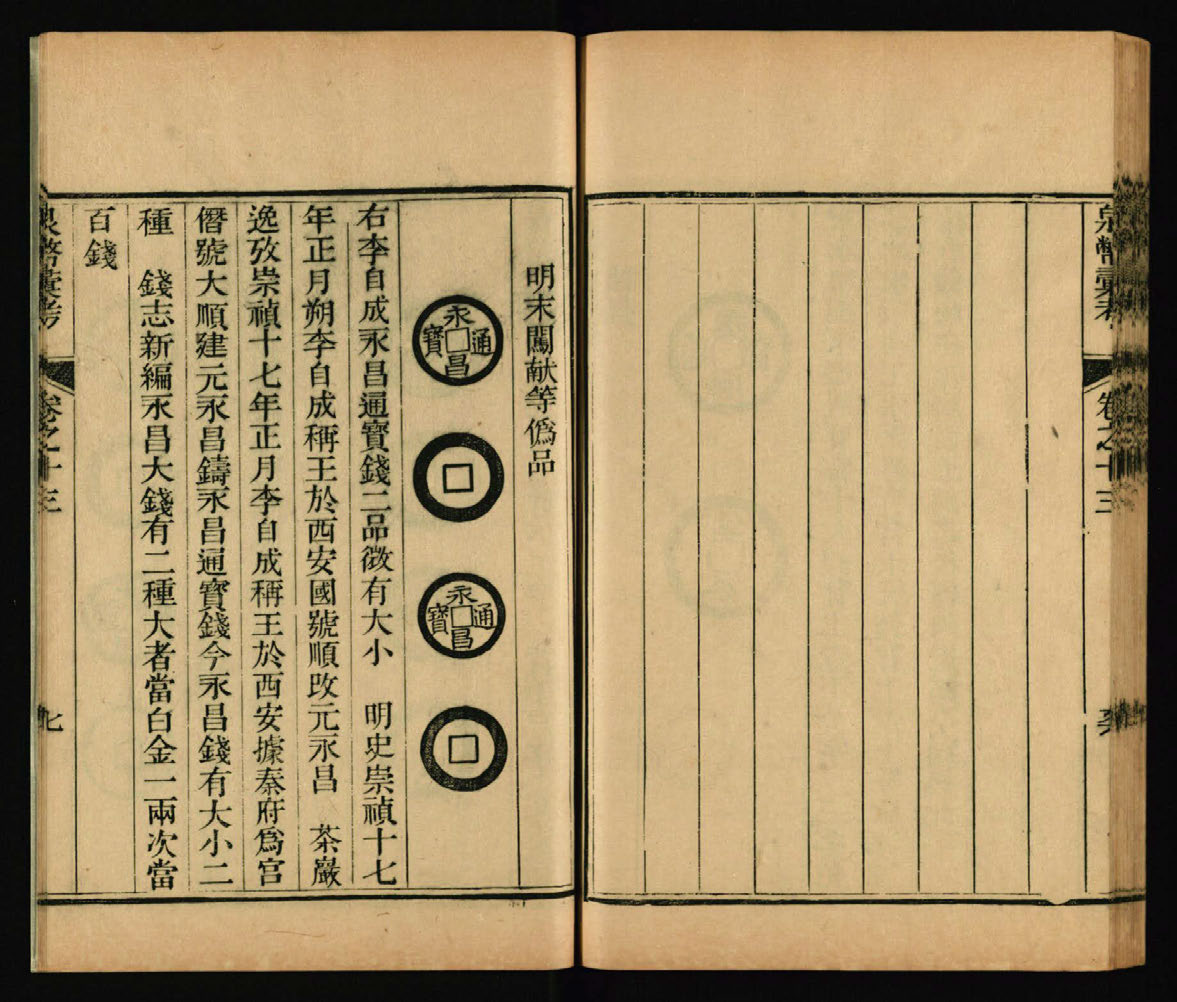 泉幣彙考
卷之十三
明末闖献等僞品
永昌通寶
永昌通寶
右李自成永昌通寶錢二品微有大小　明史崇禎十七
年正月朔李自成稱王於西安國號順改元永昌　茶巖
逸攷崇禎十七年正月李自成稱王於西安據秦府爲宫
僭號大順建元永昌鑄永昌通寶錢今永昌錢有大小二
種　錢志新編永昌大錢有二種大者當白金一兩次當
百錢
泉幣彙考
卷之十三
七